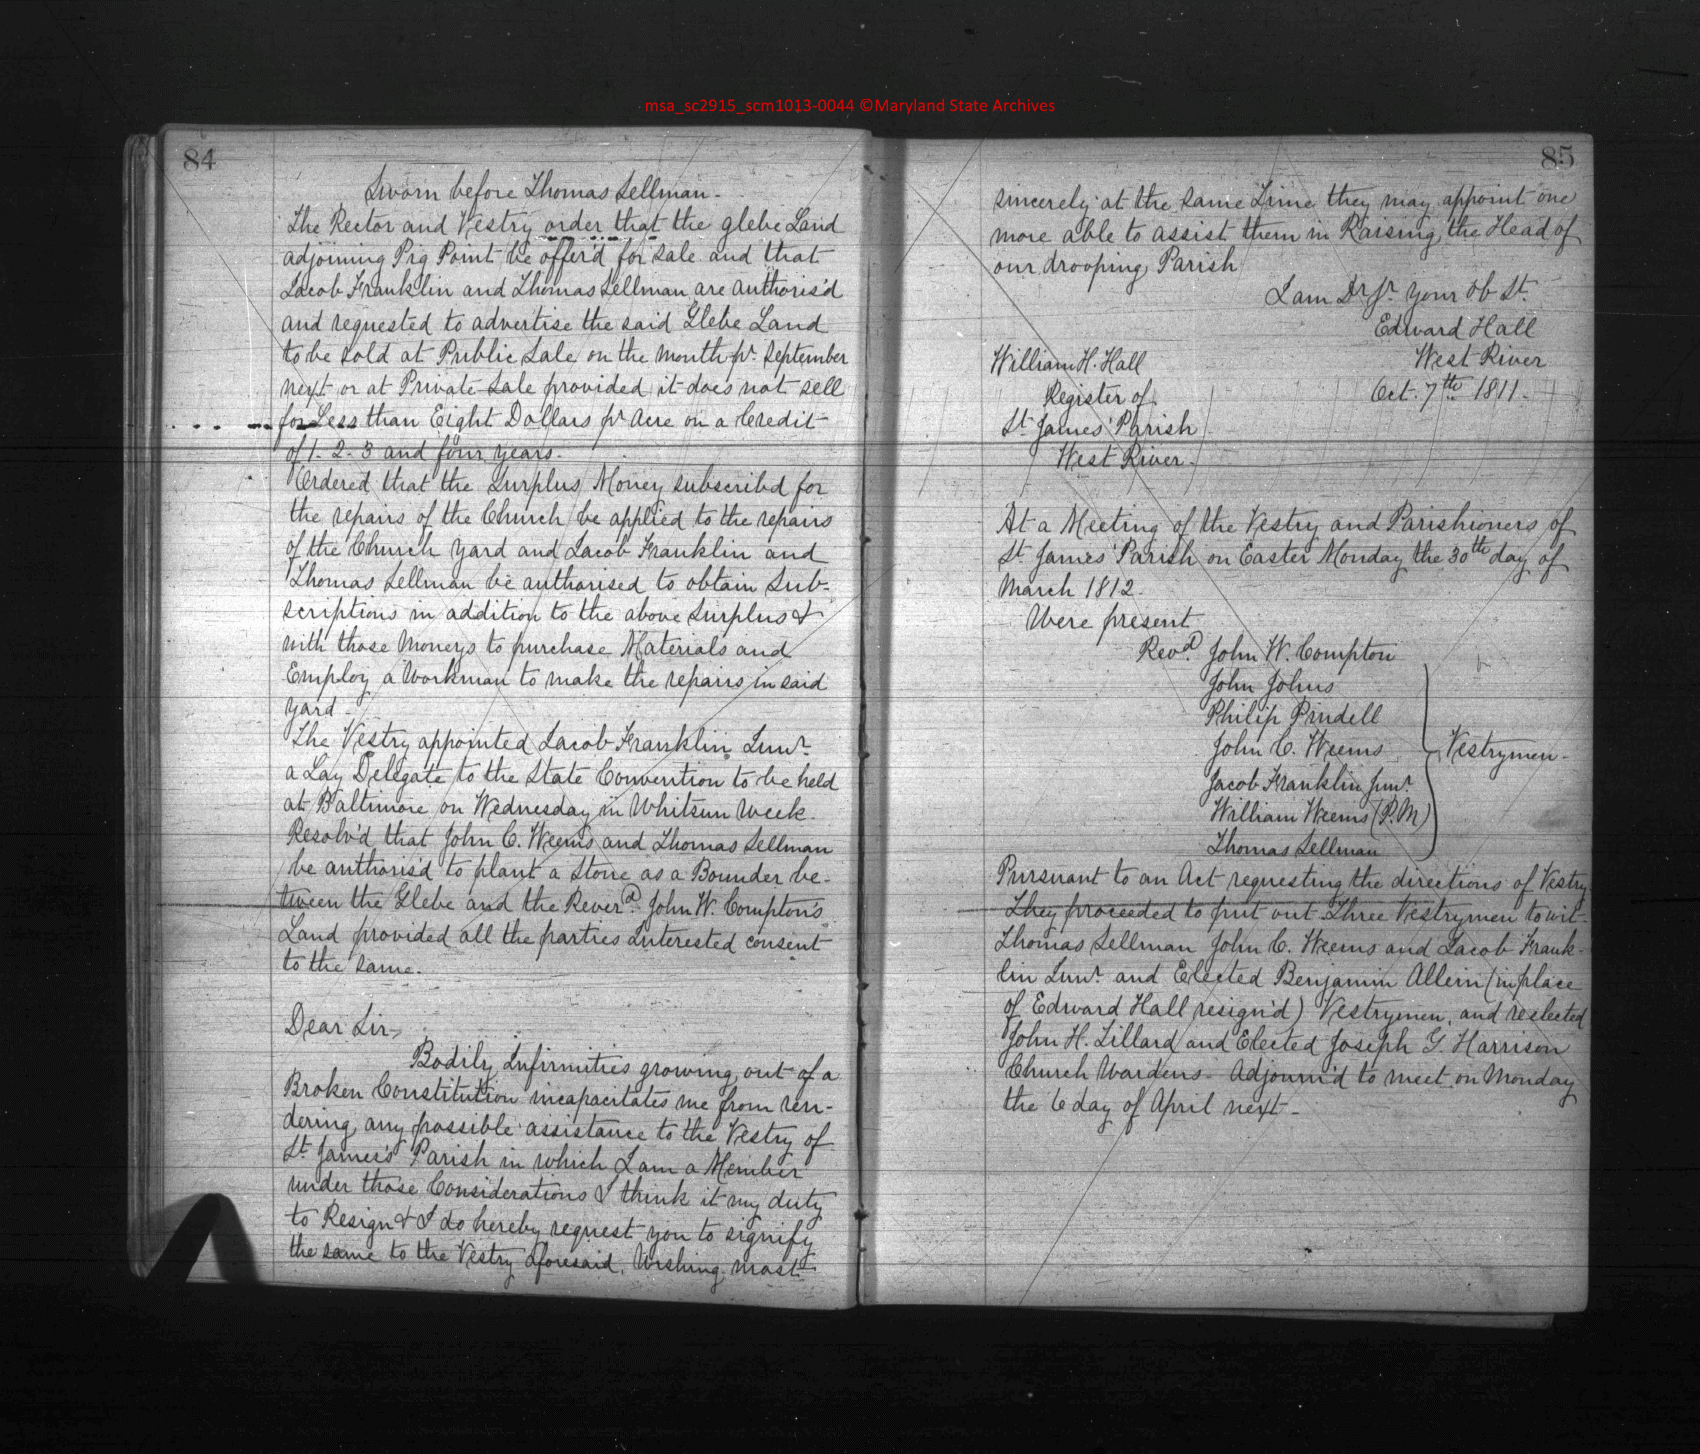 msa_sc2915_scm1013-0044 ©Maryland State Archives
84
Sworn before Thomas Sellman-
The Rector and Vestry order that the glebe Land
adjoining Pig Point be offer'd for sale and that
Jacob Franklin and Thomas Sellman are authoris'd
and requested to advertise the said Glebe Land
to be sold at Public Sale on the month pr. September
next or at Private Sale provided it does not sell
for Less than Eight Dollars pr Acre on a Credit
of 1. 2. 3 and four years.
Ordered that the Surplus Money subscribd for
the repairs of the Church be applied to the repairs
of the Church Yard and Jacob Franklin and
Thomas Sellman be authorised to obtain Sub-
scriptions in addition to the above Surplus &
with those Moneys to purchase Materials and
Employ a Workman to make the repairs in said
yard-
The Vestry appointed Jacob Franklin Junr.
a Lay Delegate to the State Convention to be held
at Baltimore on Wednesday in Whitsun Week.
Resolv'd that John C. Weems and Thomas Sellman
be authoris'd to plant a Stone as a Bounder be-
tween the Glebe and the Reverd. John W. Compton's
Land provided all the parties Interested consent
to the same.
Dear Sir,
Bodily Infirmities growing out of a
Broken Constitution incapacitates me from ren-
dering any possible assistance to the Vestry of
St. James's Parish in which I am a Member
under those Considerations I think it my duty
to Resign & I do hereby request you to signify
the same to the Vestry aforesaid. Wishing most
85
sincerely at the same Time they may appoint one
more able to assist them in Raising the Head of
our drooping Parish
I am Dr Sr. your Ob St.
Edward Hall
West River
Oct. 7th 1811.
William H. Hall
Register of
St James' Parish
West River.
At a Meeting of the Vestry and Parishioners of
St James' Parish on Easter Monday the 30th day of
March 1812.
Were present
Revd. John W. Compton
John Johns
Philip Pindell
John C. Weems
Vestrymen-
Jacob Franklin Junr.
William Weems (P.M)
Thomas Sellman
Pursuant to an Act requesting the directions of Vestry
They proceeded to put out Three Vestrymen to wit-
Thomas Sellman John C. Weems and Jacob Frank-
lin Junr. and Elected Benjamin Allein (in place
of Edward Hall resign'd) Vestrymen, and reelected
John H. Lillard and Elected Joseph G. Harrison
Church Wardens- Adjourn'd to meet on Monday
the 6 day of April next-